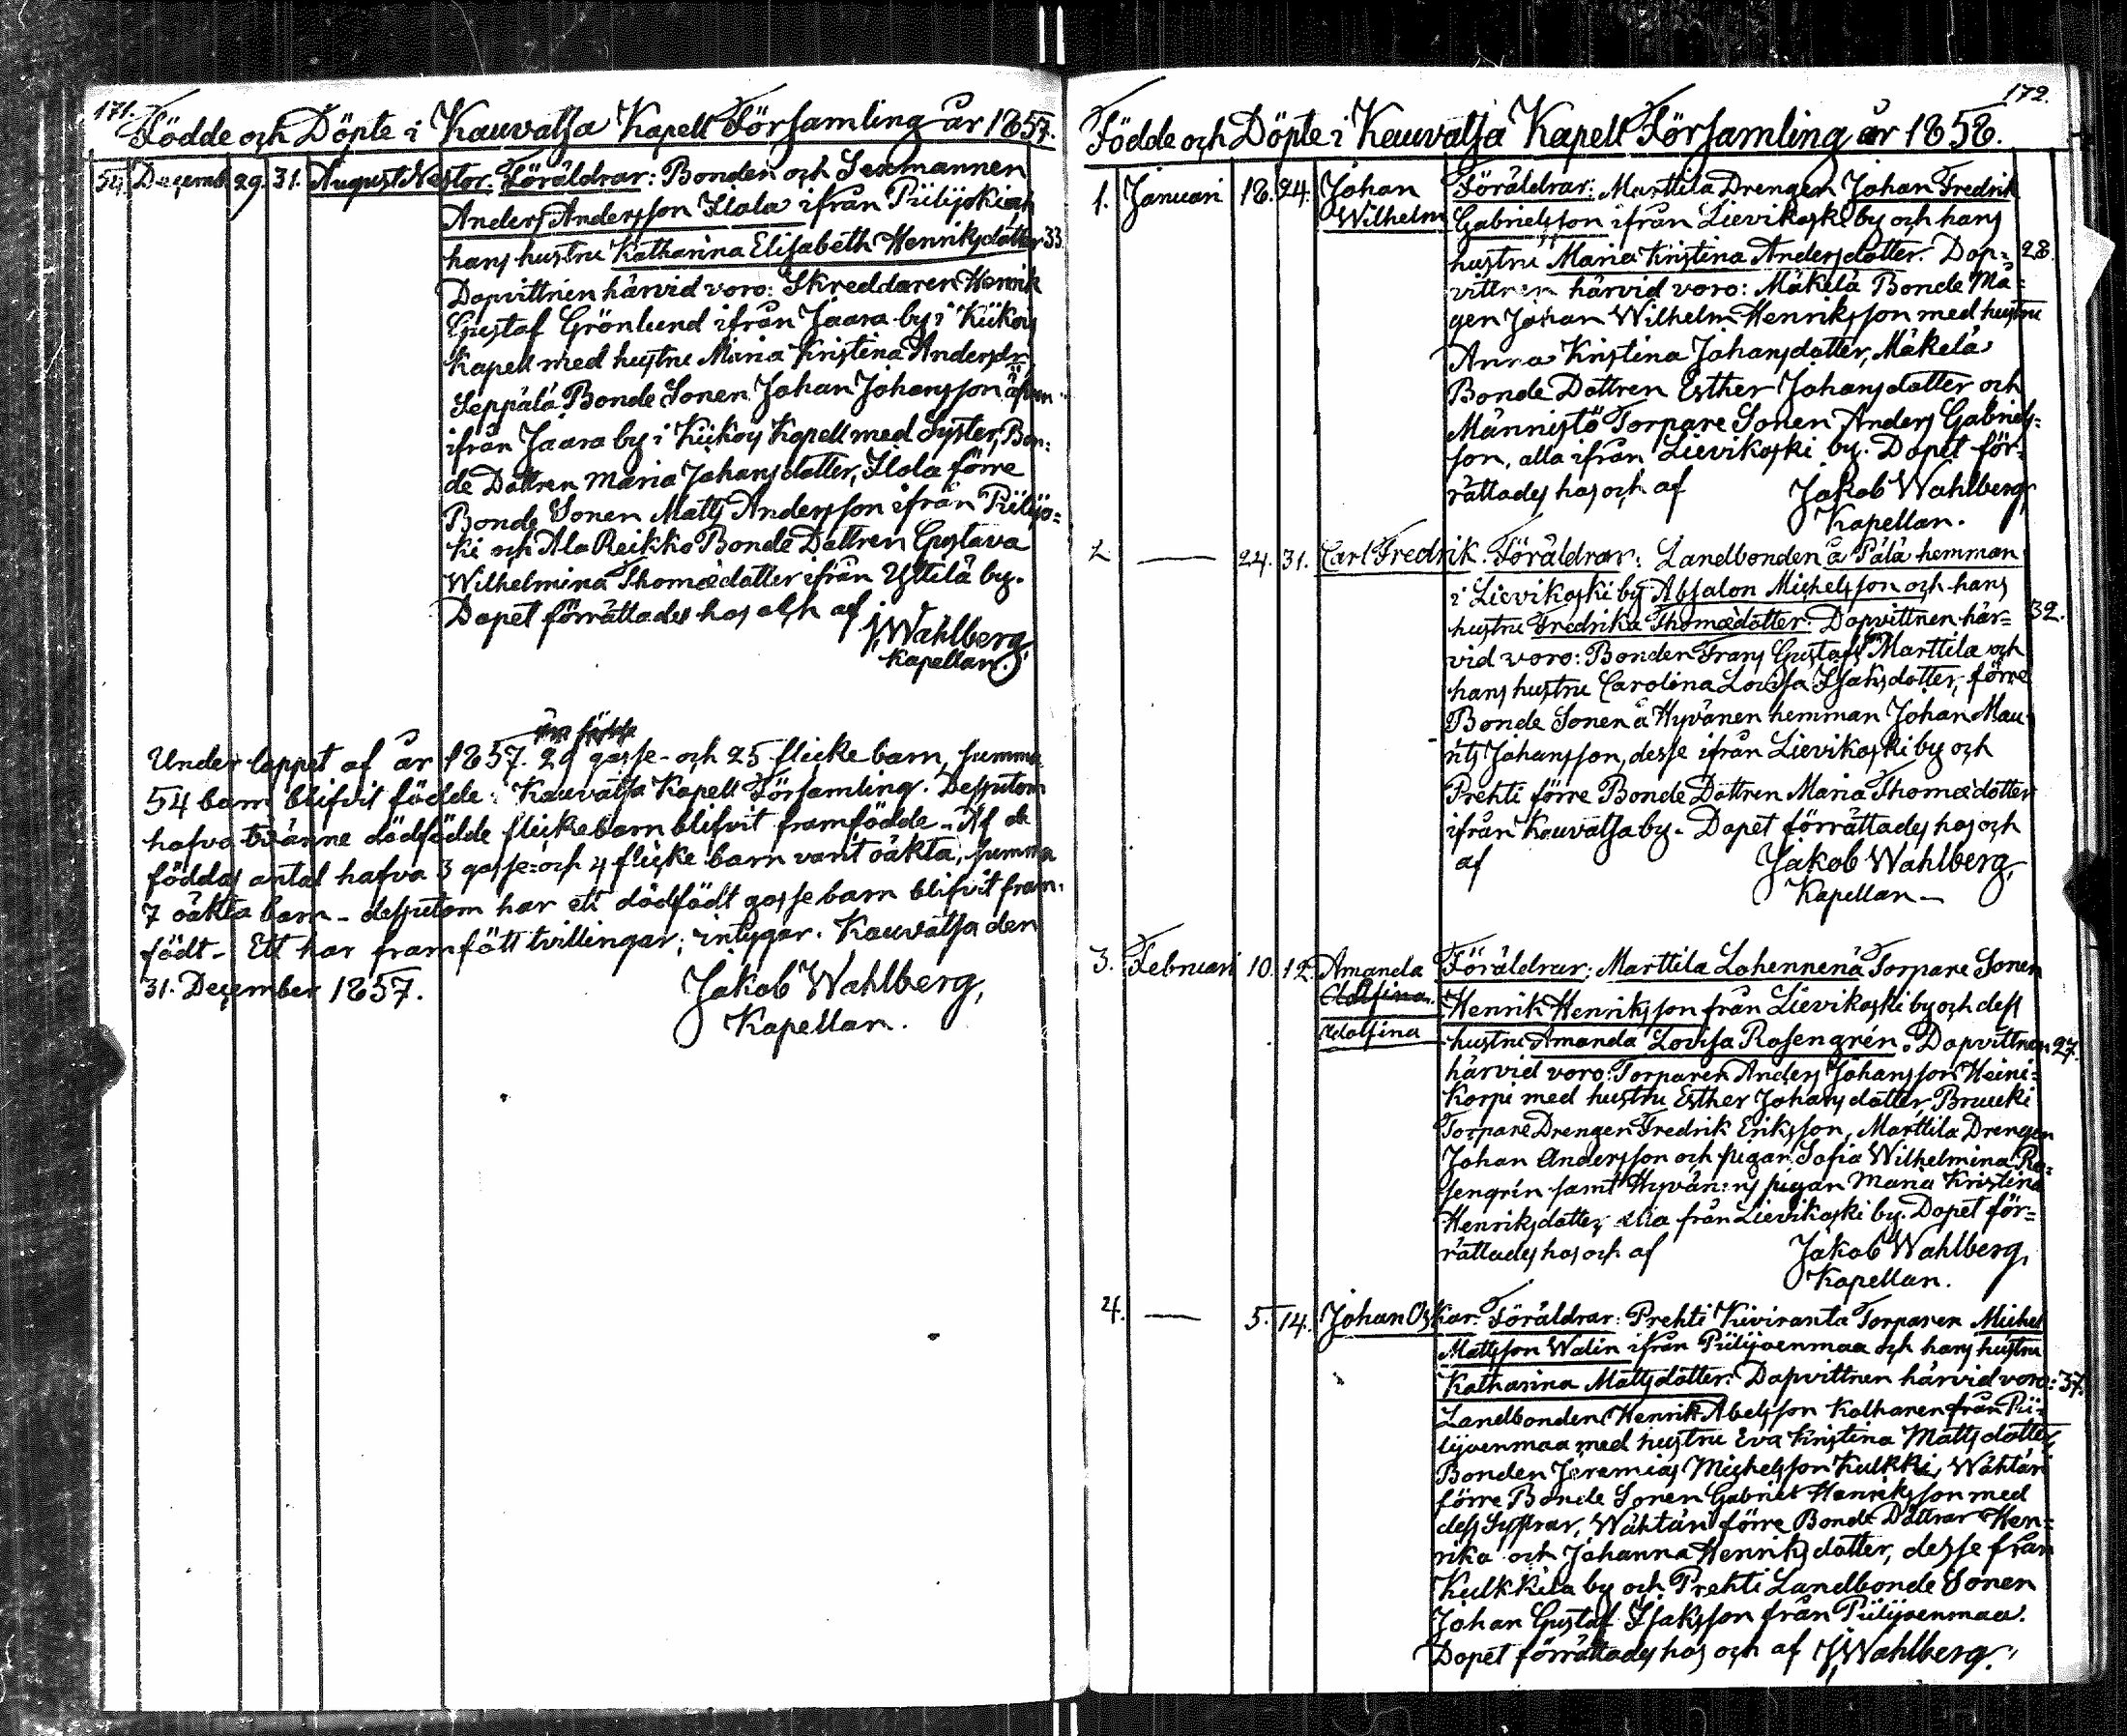 171.
Födde och Döpte i Kauvatsa Kapell Församling år 1857.
54. Decemb. 29. 31. August Nestor. Föräldrar: Bonden och Sexmannen
Anders Andersson Ilola ifrån Piilijoki och
hans hustru Katharina Elisabeth Henriksdotter 33.
Dopvittnen härvid voro: Skreddaren Henrik
Gustaf Grönlund ifrån Jaara by i Kiikois
Kapell med hustru Maria Kristina Andersdr,
Seppälä Bonde Sonen Johan Johansson äfven
ifrån Jaara by i Kiikois Kapell med Syster, Bon-
de Dottren Maria Johansdotter, Ilola förre
Bonde Sonen Matts Andersson ifrån Piilijo=
ki och Ala Reikko Bonde Dottren Gustava
Wilhelmina Thomædotter ifrån Yttilä by.
Dopet förrättades hos och af
J. Wahlberg,
Kapellan.
Under loppet af år 1857. 29 gosse- och 25 flicke barn, summa
54 barn blifvit födde i Kauvatsa Kapell Församling. Dessutom
hafva tvänne dödfödde flickebarn blifvit framfödde. Af de
föddas antal hafva 3 gosse- och 4 flicke barn varit oäkta, summa
7 oäkta barn - dessutom har ett dödfödt gossebarn blifvit fram-
födt - Ett har framfött tvillingar; intygar. Kauvatsa den
31. December 1857.
Jakob Wahlberg,
Kapellan.
172.
Födde och Döpte i Kauvatsa Kapell Församling år 1858.
1. Januari 18. 24. Johan Föräldrar: Marttila Drengen Johan Fredrik
Wilhelm Gabrielsson ifrån Lievikoski by och hans
hustru Maria Kristina Andersdotter. Dop= 28.
vittnen härvid voro: Mäkelä Bonde Må=
gen Johan Wilhelm Henriksson med hustru
Anna Kristina Johansdotter, Mäkelä
Bonde Dottren Esther Johansdotter och
Männistö Torpare Sonen Anders Gabriels=
son, alla ifrån Lievikoski by. Dopet för-
rättades hos och af Jakob Wahlberg,
Kapellan.
2. — 24. 31. Carl Fredrik. Föräldrar: Landbonden å Pälä hemman
i Lievikoski by Absalon Michelsson och hans
hustru Fredrika Thomædotter. Dopvittnen här= 32.
vid voro: Bonden Frans Gustafs son Marttila och
hans hustru Carolina Lovisa Isaksdotter, förre
Bonde Sonen å Hyvänen hemman Johan Mau-
rits Johansson, desse ifrån Lievikoski by och
Prehti förre Bonde Dottren Maria Thomædotter
ifrån Kauvatsa by. Dopet förrättades hos och
af Jakob Wahlberg,
Kapellan -
3. Februari 10. 12. Amanda Föräldrar: Marttila Lahennenä Torpare Sonen
Adolfina. Henrik Henriksson från Lievikoski by och dess
Adolfina hustru Amanda Lovisa Rosengrén. Dopvittnen 27.
härvid voro: Torparen Anders Johansson Heini=
korpi med hustru Esther Johansdotter, Bruuki
Torpare Drengen Fredrik Eriksson, Marttila Drengen
Johan Andersson och pigan Sofia Wilhelmina Ro=
sengrén samt Hyvänens pigan Maria Kristina
Henriksdotter, alla från Lievikoski by. Dopet för=
rättades hos och af Jakob Wahlberg,
Kapellan.
4. — 5. 14. Johan Oskar. Föräldrar: Prehti Kiviranta Torparen Michel
Mattsson Walin ifrån Piilijoenmaa och hans hustru
Katharina Mattsdotter. Dopvittnen härvid voro: 37.
Landbonden Henrik Abelsson Kalhanen från Pii-
lijoenmaa med hustru Eva Kristina Mattsdotter,
Bonden Jeremias Michelsson Kulkki, Wähtäri
förre Bonde Sonen Gabriel Henriksson med
dess Systrar, Wähtäri förre Bonde Döttrar Hen=
rika och Johanna Henriksdotter, desse från
Kulkkila by och Prehti Landbonde Sonen
Johan Gustaf Isaksson från Piilijoenmaa.
Dopet förrättades hos och af J. Wahlberg.